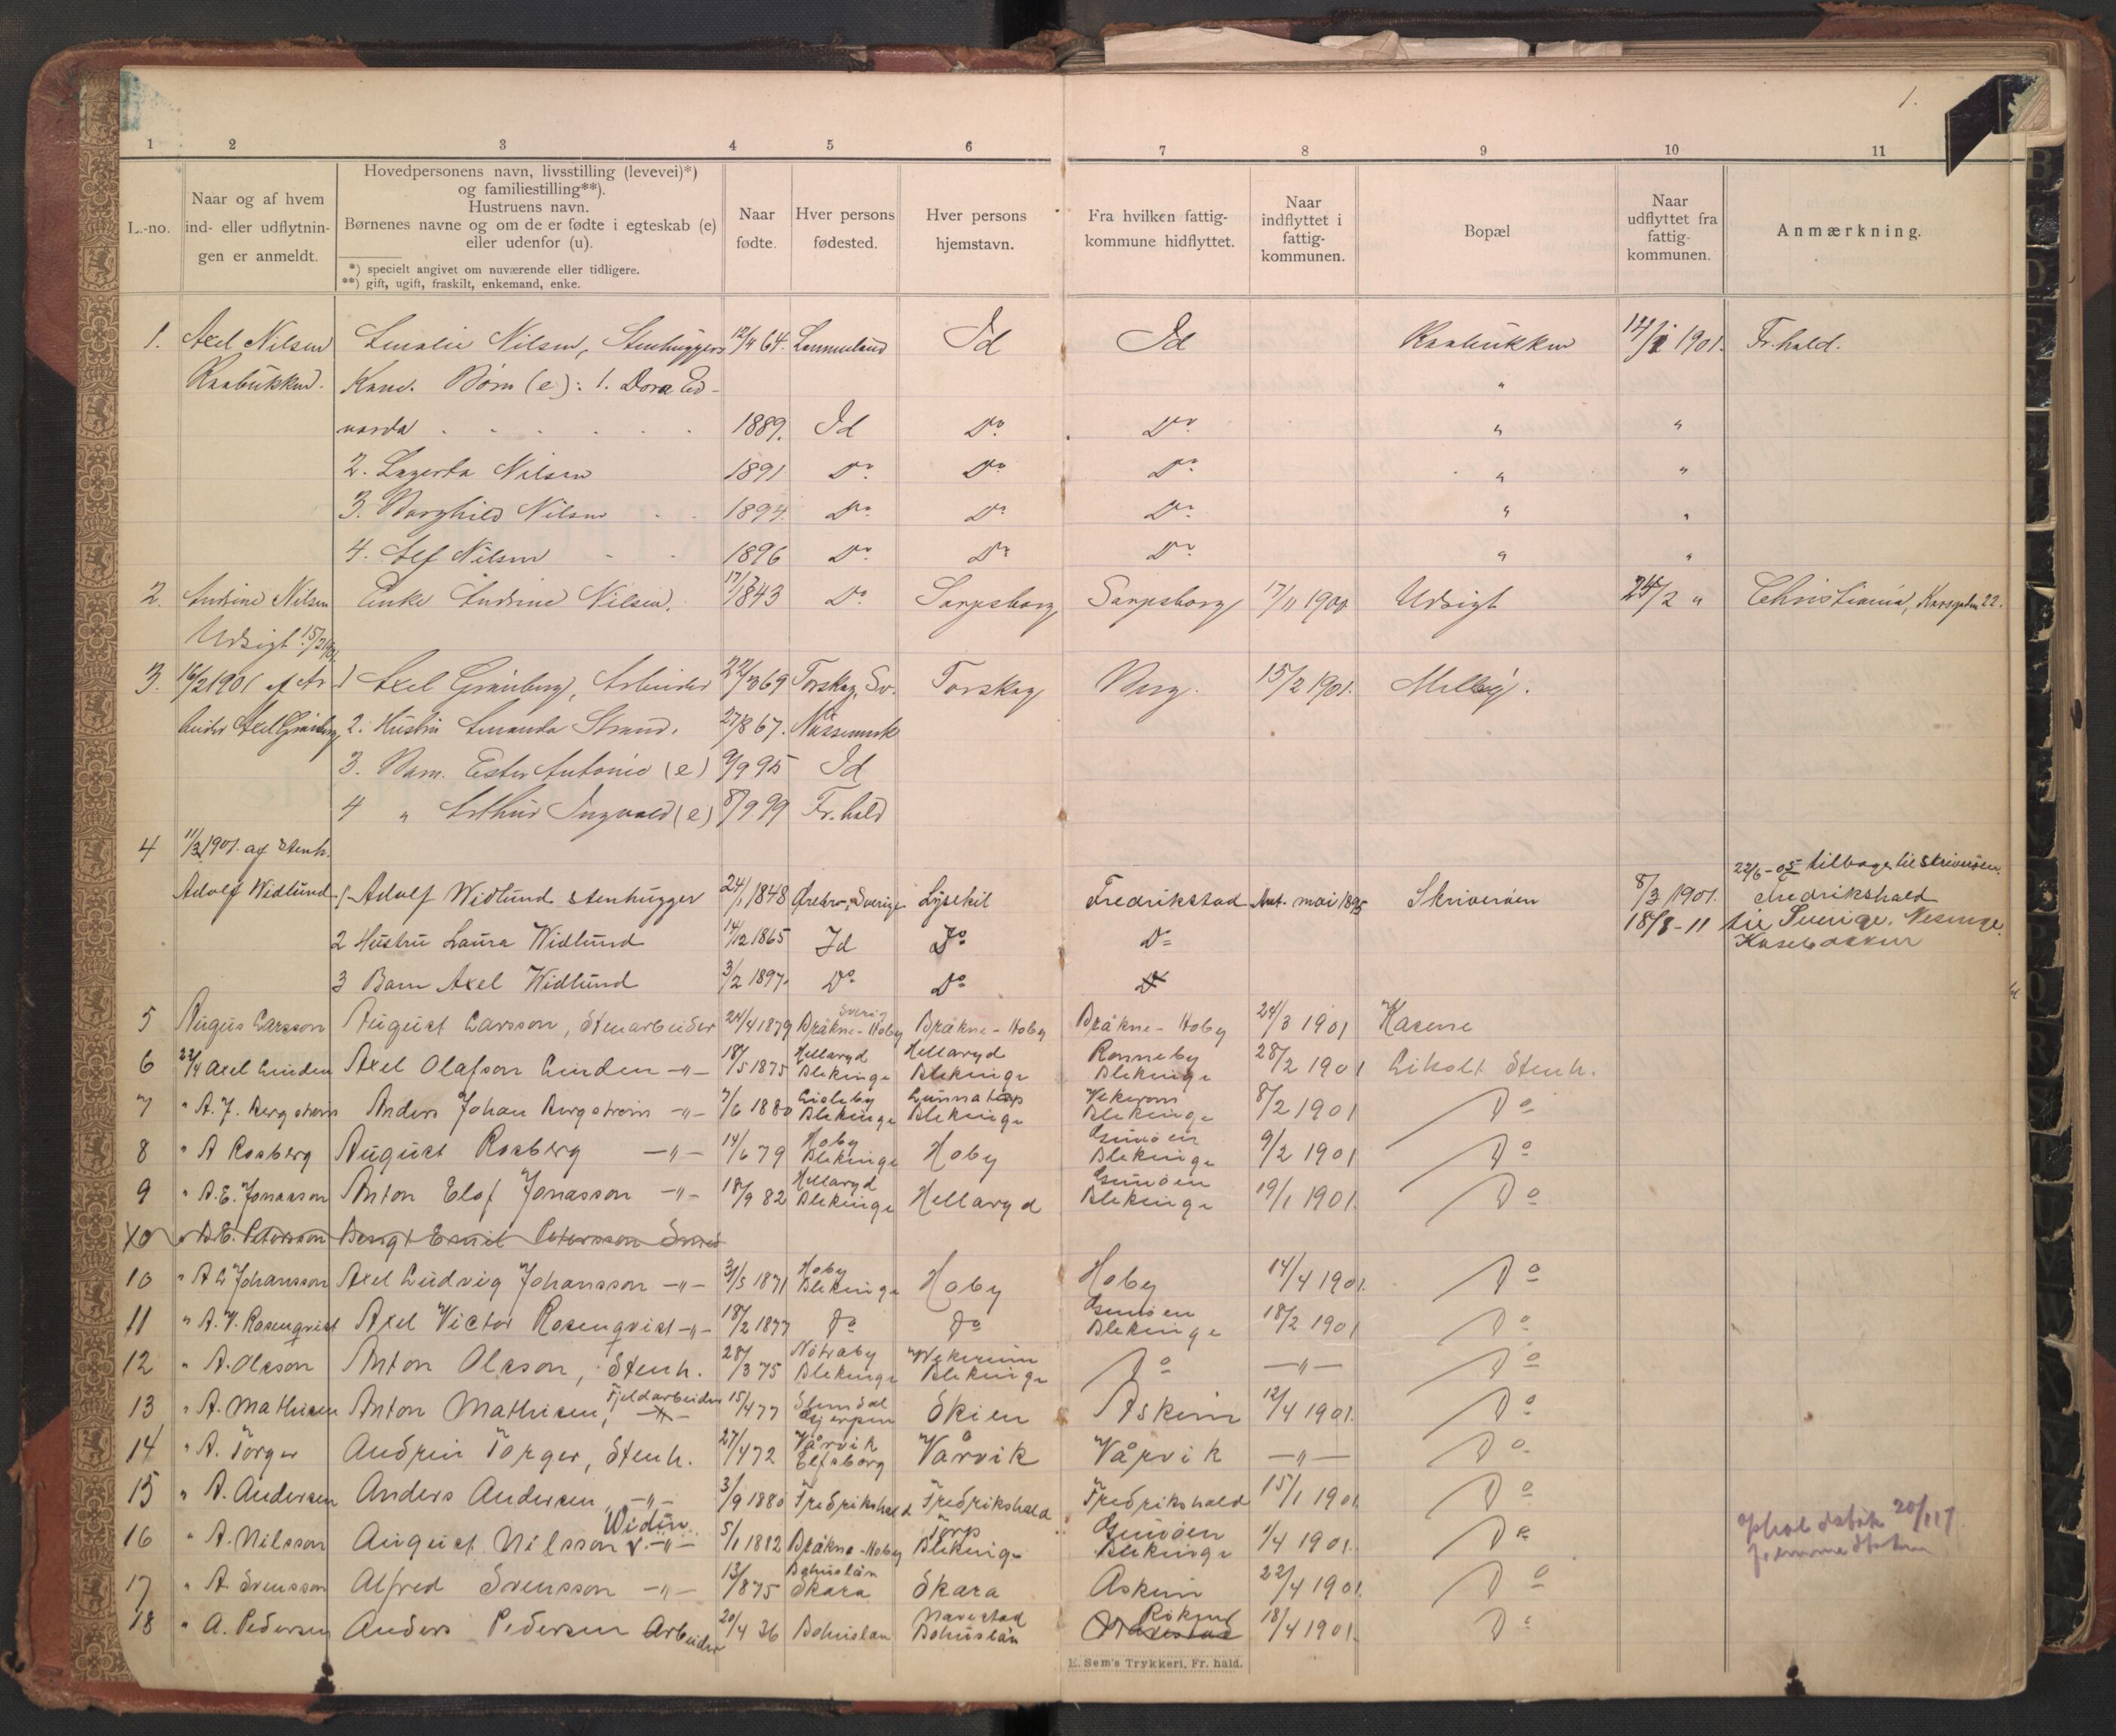 1.
1 2 3 4 5 6 7 8 9 10 11
L.-no.
Naar og af hvem
ind- eller udflytnin-
gen er anmeldt.
Hovedpersonens navn, livsstilling (levevei)*)
og familiestilling**).
Hustruens navn.
Børnenes navne og om de er fødte i egteskab (e)
eller udenfor (u).
*) specielt angivet om nuværende eller tidligere.
**) gift, ugift, fraskilt, enkemand, enke.
Naar
fødte.
Hver persons
fødested.
Hver persons
hjemstavn.
Fra hvilken fattig-
kommune hidflyttet.
Naar
indflyttet i
fattig-
kommunen.
Bopæl
Naar
udflyttet fra
fattig-
kommunen.
Anmærkning.
1. Axel Nilsen Amalie Nilsen, Stenhuggers 12/4 64. Id Id Raabukken 1901. Fr.hald.
Raabukken. Kone. Børn (e): 1. Dora Ed- "
varda 1889. Id Do Do " "
2. Lagerta Nilsen 1891 Do Do Do " "
3. Borghild Nilsen 1894 Do Do Do " "
4. Alf Nilsen 1896 Do Do Do " "
2. Andrine Nilsen Enke Andrine Nilsen. 1843 Do Sarpsborg Sarpsborg 17/11 1900 Udsigt 25/2 " Christiania, 22.
Udsigt 15/2
3. 16/2 1901 af Ar- 1 Axel Grönberg, Arbeider 69 Torskog, Sv. Torskog Berg. 15/2 1901.
beider Axel Grönberg 2. Hustru Amanda Strand. 27/8 67.
3. Barn. Ester Antonie (e) 9/9 95 Id
4 " Arthur Ingvald (e) 8/9 99 Fr.hald
4 11/3 1901. af Stenh. 22/6-05 tilbage til Skriverøen.
Adolf Widlund 1 Adolf Widlund stenhugger 24/1 1848 Örebro, Sverige Lysekil Fredrikstad mai 1895 Skriverøen 8/3 1901. Fredrikshald
18/8-11 til Sverige.
2 Hustru Laura Widlund 14/12 1865 Id Do Do
3 Barn Axel Widlund 3/2 1897. Do Do Do
5 August Carsson August Carsson, Stenarbeider 24/4 1879 Bräkne-Hoby Sverig Bräkne-Hoby Bräkne-Hoby 24/3 1901 Kasene
6 22/4 Axel Linden Axel Olafson Linden -"- 18/5 1875 Hellaryd Blekinge Hellaryd Blekinge Ronneby Blekinge 28/2 1901 Liholt Stenh.
7 " A. J. Bergstrøm Anders Johan Bergstrøm -"- 7/6 1880 Blekinge Blekinge Blekinge 8/2 1901 Do
8 " A Rosberg August Rosberg -"- 14/6 79 Hoby Blekinge Hoby Blekinge 9/2 1901 Do
9 " A. E. Jonasson Anton Elof Jonasson -"- 18/9 82 Hellaryd Blekinge Hellaryd Blekinge 19/1 1901. Do
10 " B E. Petersson Bengt Emil Petersson Smed
10 " A L Johansson Axel Ludvig Johansson -"- 3/5 1871 Hoby Blekinge Hoby Hoby 14/4 1901. Do
11 " A. V. Rosenqvist Axel Victor Rosenqvist -"- 18/2 1877 Do Do Blekinge 18/2 1901 Do
12 " A. Olsson Anton Olsson, Stenh. 28/3 75 Blekinge Blekinge Do -"- Do
13 " A. Mathisen Anton Mathisen, Fjeldarbeider 15/4 77 Gjerpen Skien Askim 12/4 1901. Do
14 " A. Torger Andrin Torger, Stenh. 27/4 72 Vårvik Elfsborg Vårvik Vårvik -"- Do
15 " A. Andersen Anders Andersen -"- 3/9 1880 Fredrikshald Fredrikshald Fredrikshald 15/1 1901. Do
16 " A. Nilsson August Nilsson Widin -"- 5/1 1882 Bräkne-Hoby Torp Blekinge Blekinge 1/4 1901. Do 20/117
17 " A Svensson Alfred Svensson -"- 13/8 75 Bohuslän Skara Skara Askim 22/4 1901. Do
18 " A. Pedersen Anders Pedersen Arbeider 20/4 36 Bohuslan Navestad Bohuslän Navestad 18/4 1901. Do
E. Sem's Trykkeri, Fr. hald.
B
D
F
P
Q
R
S
V